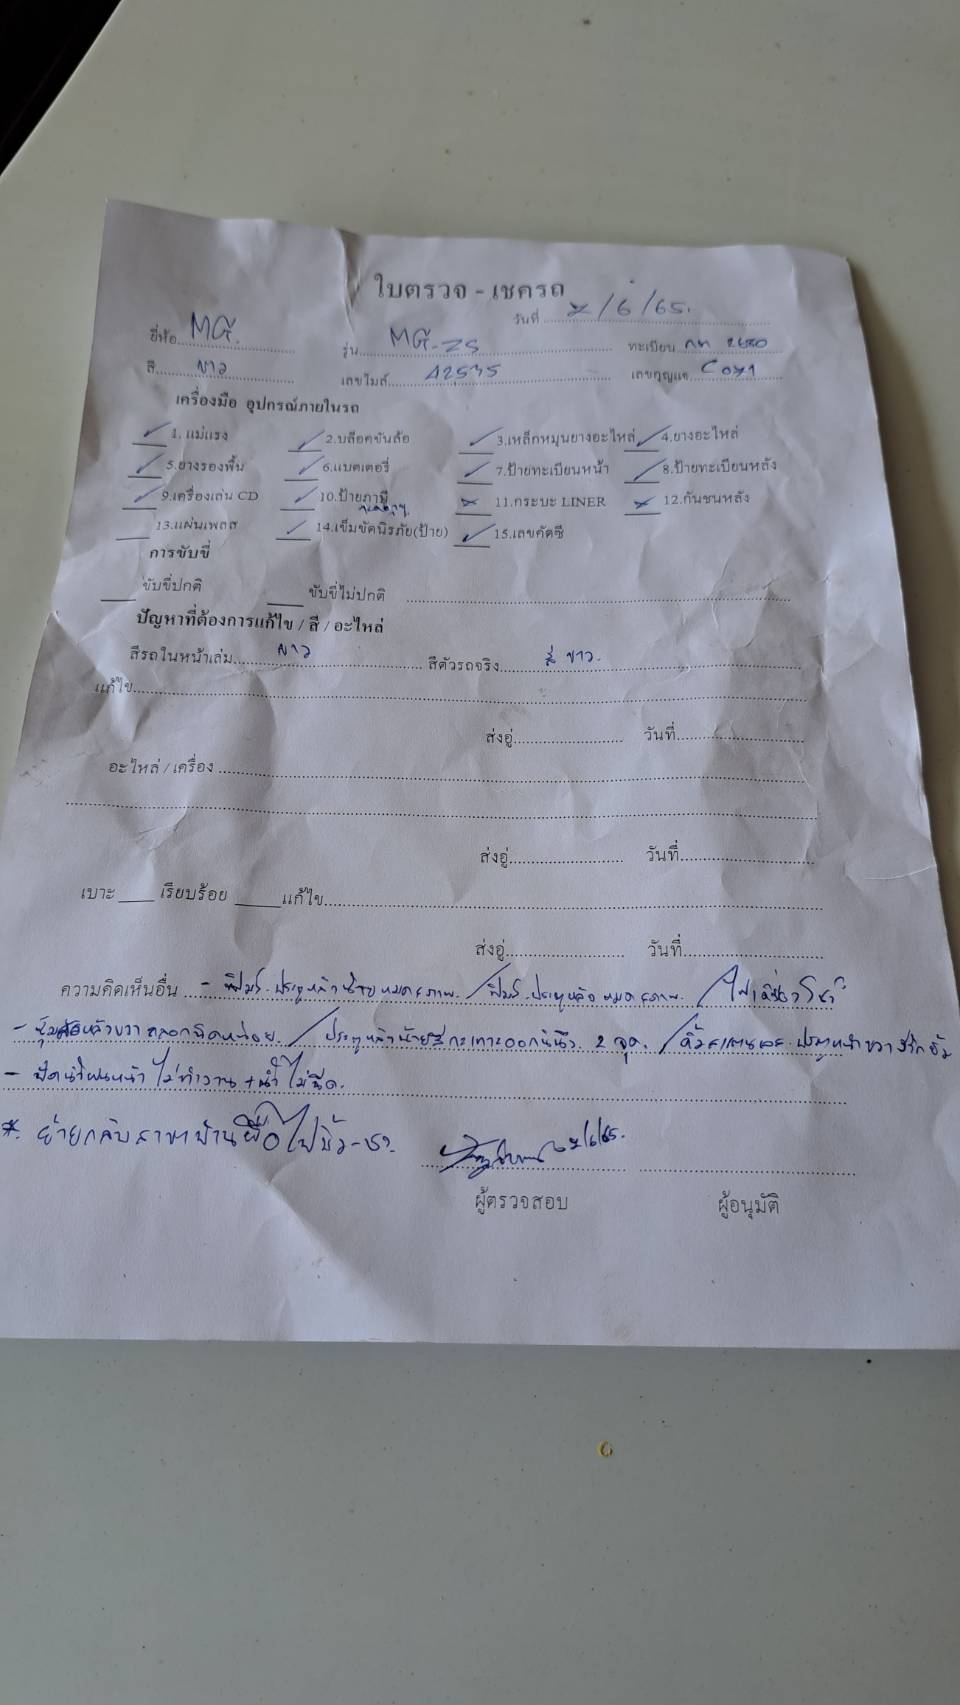 ใบตรวจ - เชครถ
วันที่ /6/65.
ยี่ห้อ MG. รุ่น MG-ZS ทะเบียน 2630
สี ขาว เลขไมล์ 42535 เลขกุญแจ
เครื่องมือ อุปกรณ์ภายในรถ
1. แม่แรง 2.บล็อคขันล้อ 3.เหล็กหมุนยางอะไหล่ 4.ยางอะไหล่
5.ยางรองพื้น 6.แบตเตอรี่ 7.ป้ายทะเบียนหน้า 8.ป้ายทะเบียนหลัง
9.เครื่องเล่น CD 10.ป้ายภาษี 11.กระบะ LINER 12.กันชนหลัง
13.แผ่นเพลส 14.เข็มขัดนิรภัย(ป้าย) 15.เลขคัตซี
การขับขี่
ขับขี่ปกติ ขับขี่ไม่ปกติ
ปัญหาที่ต้องการแก้ไข / สี / อะไหล่
สีรถในหน้าเล่ม ขาว สีตัวรถจริง สี ขาว.
แก้ไข
ส่งอู่ วันที่
อะไหล่ / เครื่อง
ส่งอู่ วันที่
เบาะ เรียบร้อย แก้ไข
ส่งอู่ วันที่
ความคิดเห็นอื่น - ฟิมล์ ประตูหลังซ้าย หมดสภาพ. / ฟิมล์ ประตูหลัง หมดสภาพ. /
- หลังขวา ถลอกนิดหน่อย. / ประตูหลังซ้ายสีกะเทาะออกนิดนึง 2 จุด. / คิ้วสแตนเลส ประตูหน้าขวา
- ฉีดน้ำฝนหน้า ไม่ทำงาน + น้ำไม่ฉีด.
*. ย้ายกลับสาขาบ้านผือ
/6/65.
ผู้ตรวจสอบ ผู้อนุมัติ